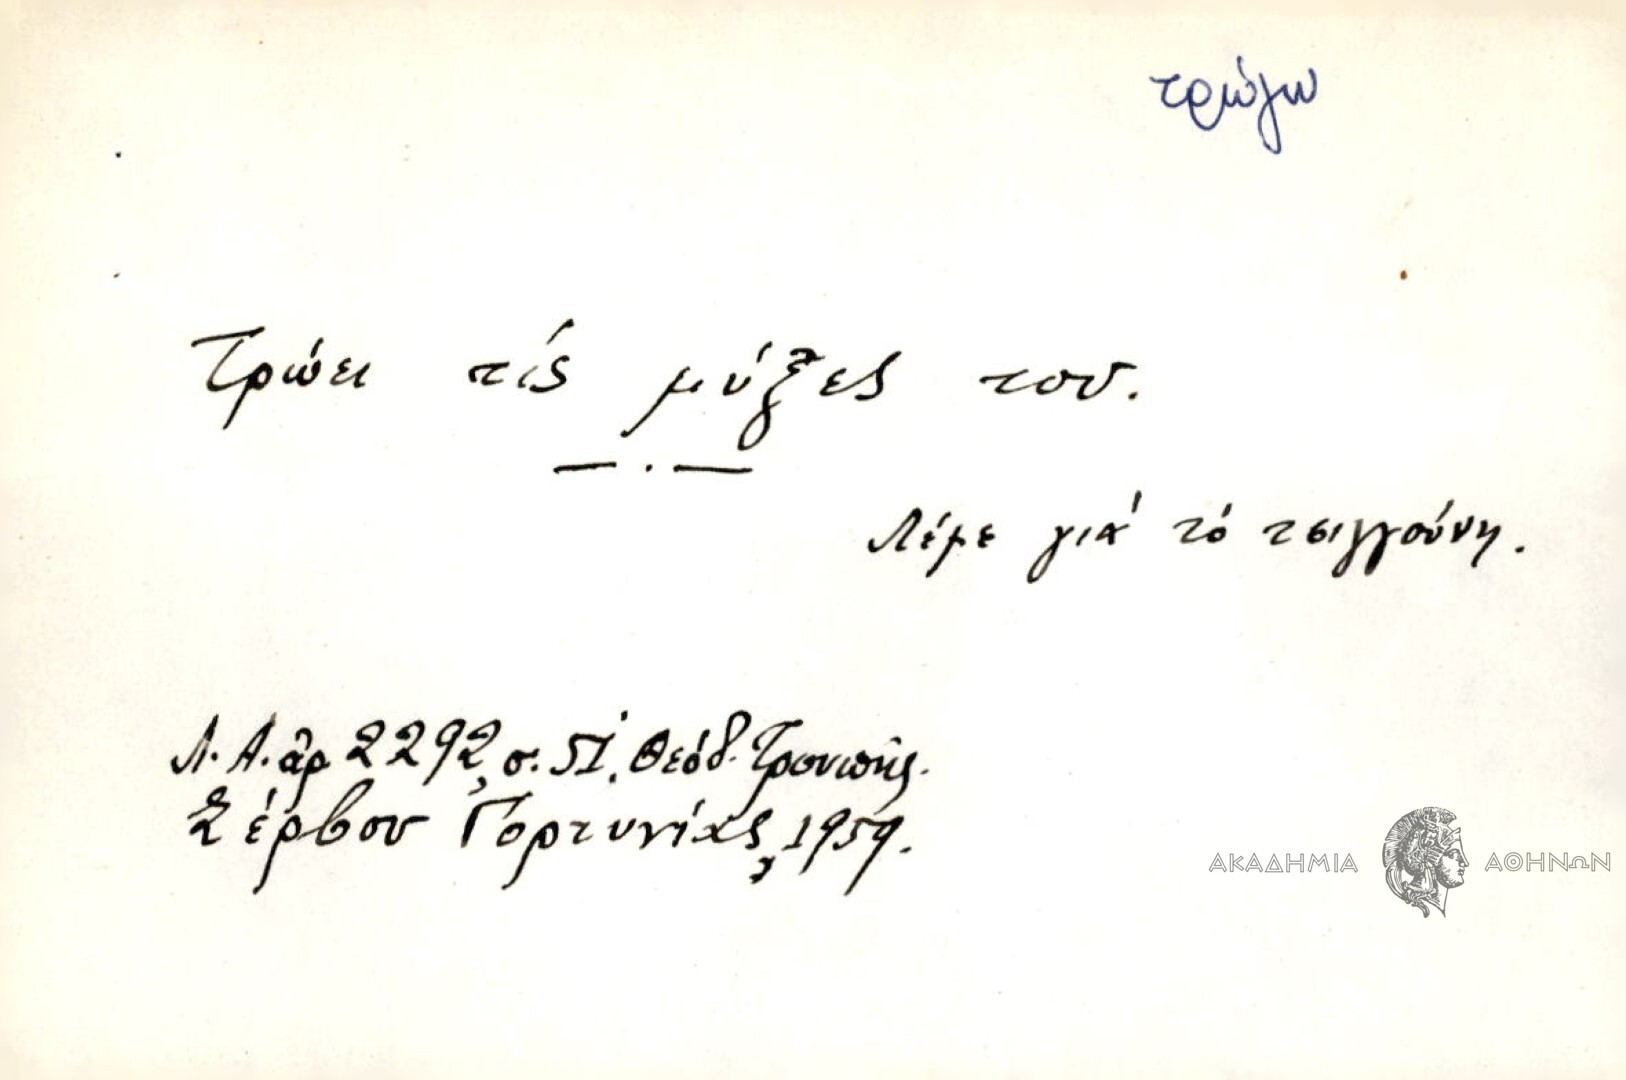 τρώγω
Τρώει τίς μύξες του.
Λέμε γιά τό τσιγγούνη.
Λ.Α. ἀρ 2292, σ. 51, Θεόδ.
Σέρβου Γορτυνίας, 1959.
ΑΚΑΔΗΜΙΑ ΑΘΗΝΩΝ